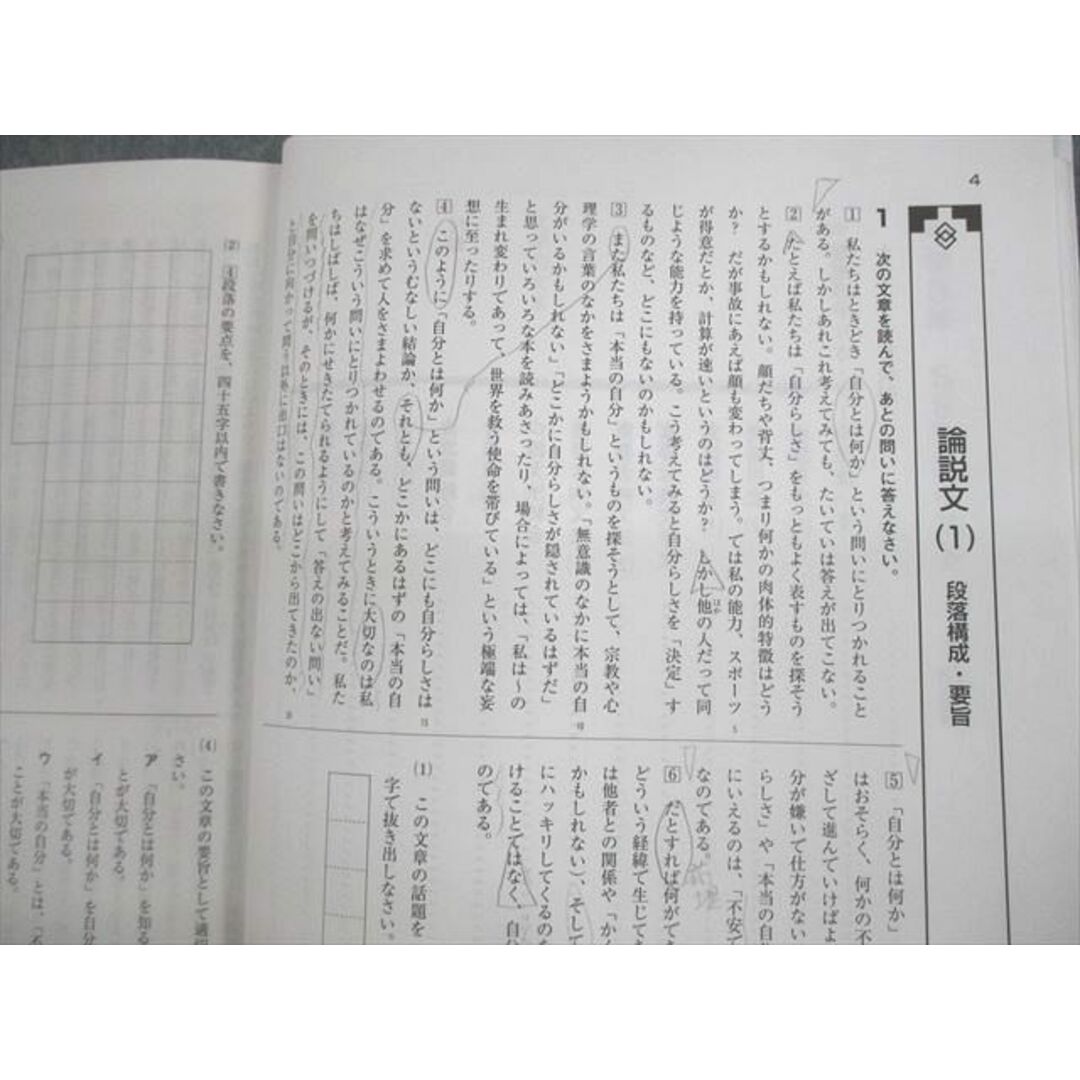 4
論説文(1) 段落構成・要旨
1 次の文章を読んで、あとの問いに答えなさい。
1 私たちはときどき「自分とは何か」という問いにとりつかれること
がある。しかしあれこれ考えてみても、たいていは答えが出てこない。
2 たとえば私たちは「自分らしさ」をもっともよく表すものを探そう
とするかもしれない。顔だちや背丈、つまり何かの肉体的特徴はどう
か? だが事故にあえば顔も変わってしまう。では私の能力、スポーツ
が得意だとか、計算が速いというのはどうか? しかし他の人だって同
ほか
じような能力を持っている。こう考えてみると自分らしさを「決定」す
るものなど、どこにもないのかもしれない。
3 また私たちは「本当の自分」というものを探そうとして、宗教や心
理学の言葉のなかをさまようかもしれない。「無意識のなかに本当の自
分がいるかもしれない」「どこかに自分らしさが隠されているはずだ」
と思っていろいろな本を読みあさったり、場合によっては、「私は〜の
生まれ変わりであって、世界を救う使命を帯びている」という極端な妄
想に至ったりする。
4 このように「自分とは何か」という問いは、どこにも自分らしさは
ないというむなしい結論か、それとも、どこかにあるはずの「本当の自
分」を求めて人をさまよわせるのである。こういうときに大切なのは私
はなぜこういう問いにとりつかれているのかと考えてみることだ。私た
ちはしばしば、何かにせきたてられるようにして「答えの出ない問い」
を問いつづけるが、そのときには、この問いはどこから出てきたのか、
と自分に向かって問う以外に出口はないのである。
5
10
15
5 「自分とは何か」
はおそらく、何かの不
ざして進んでいけばよ
分が嫌いで仕方がない
らしさ」や「本当の自
にいえるのは、「不安で
なのである。
6 だとすれば何がで
どういう経緯で生じて
は他者との関係や「か
かもしれない)、そして
にハッキリしてくるの
けることではなく、自
のである。
(1) この文章の話題を
字で抜き出しなさい。
(2) 4段落の要点を、四十五字以内で書きなさい。
(4) この文章の要旨として適切
さい。
ア 「自分とは何か」を知る
とが大切である。
イ 「自分とは何か」を自分
が大切である。
ウ 「本当の自分」とは、「不
ことが大切である。